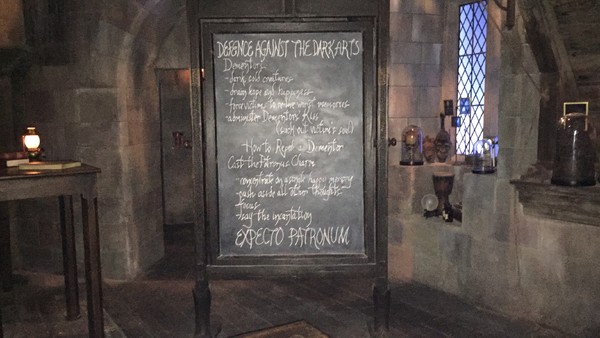 DEFENCE AGAINST THE DARK ARTS
Dementors
- dark, evil creatures
- drain hope and happiness
- force victims to relive worst memories
- administer Dementor's Kiss
(suck out victim's soul)
How to Repel a Dementor
Cast the Patronus Charm
- concentrate on a single happy memory
- push aside all other thoughts
focus
- say the incantation
EXPECTO PATRONUM